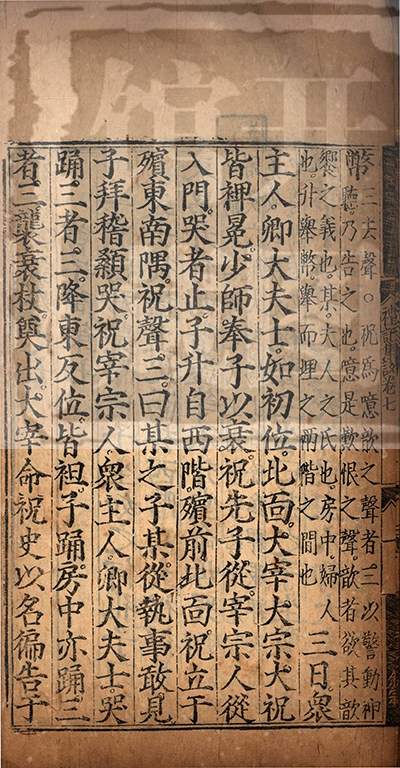 幣三去聲○祝爲噫歆之聲者三以警動神
聽乃告之也噫是歎恨之聲歆者欲其歆
饗之義也某夫人之氏也房中婦人
也升舉幣舉而埋之兩階之間也三日衆
主人。卿大夫士。如初位。北面。大宰大宗大祝
皆裨冕。少師奉子以衰。祝先子從宰宗人從
入門。哭者止。子升自西階。殯前北面。祝立于
殯東南隅。祝聲三。曰某之子某。從執事敢見
子拜稽顙哭祝宰宗人衆主人卿大夫士。哭
踊三者三。降東反位皆袒。子踊房中亦踊三
者三。襲衰杖奠出。大宰命祝史以名徧告于